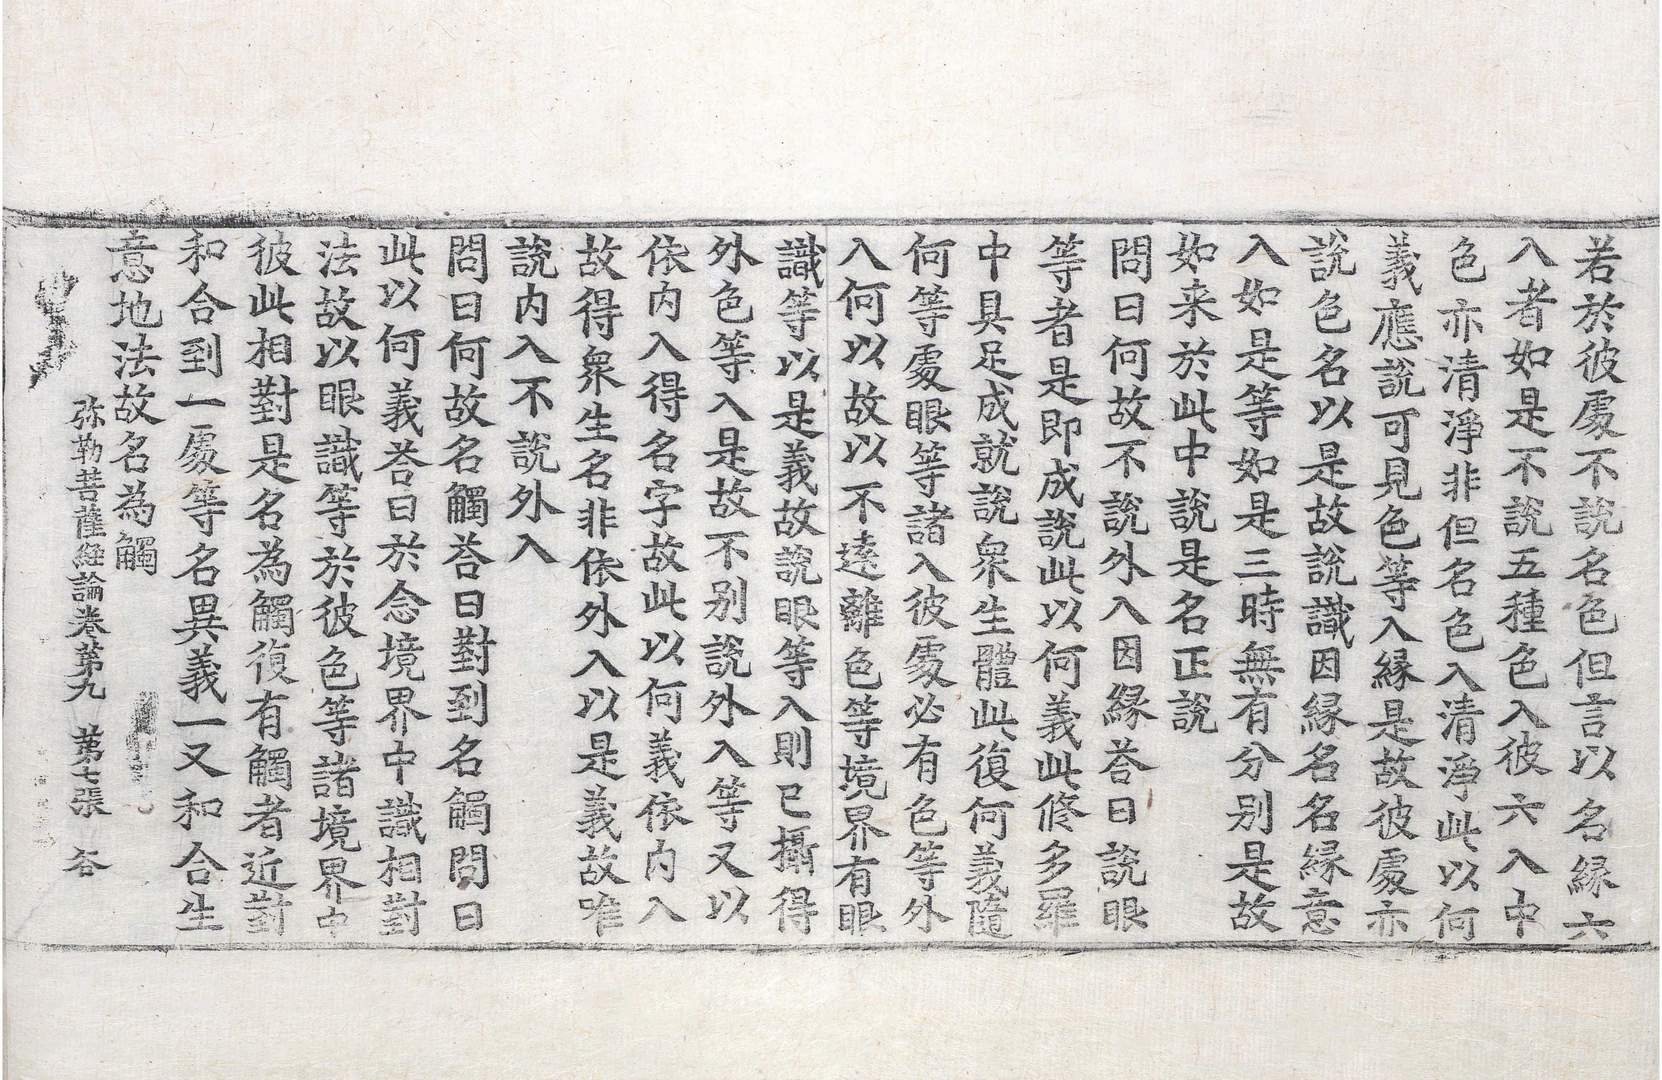 若於彼處不說名色但言以名縁六
入者如是不說五種色入彼六入中
色亦清淨非但名色入清淨此以何
義應說可見色等入縁是故彼處亦
說色名以是故說識因縁名名縁意
入如是等如是三時無有分别是故
如来於此中說是名正說
問曰何故不說外入因縁荅曰說眼
等者是即成說此以何義此修多羅
中具足成就說衆生體此復何義隨
何等處眼等諸入彼處必有色等外
入何以故以不逺離色等境界有眼
識等以是義故說眼等入則已攝得
外色等入是故不别說外入等又以
依内入得名字故此以何義依内入
故得衆生名非依外入以是義故唯
說内入不說外入
問曰何故名觸荅曰對到名觸問曰
此以何義荅曰於念境界中識相對
法故以眼識等於彼色等諸境界中
彼此相對是名為觸復有觸者近對
和合到一處等名異義一又和合生
意地法故名為觸
弥勒菩薩経論卷第九 第七張 谷